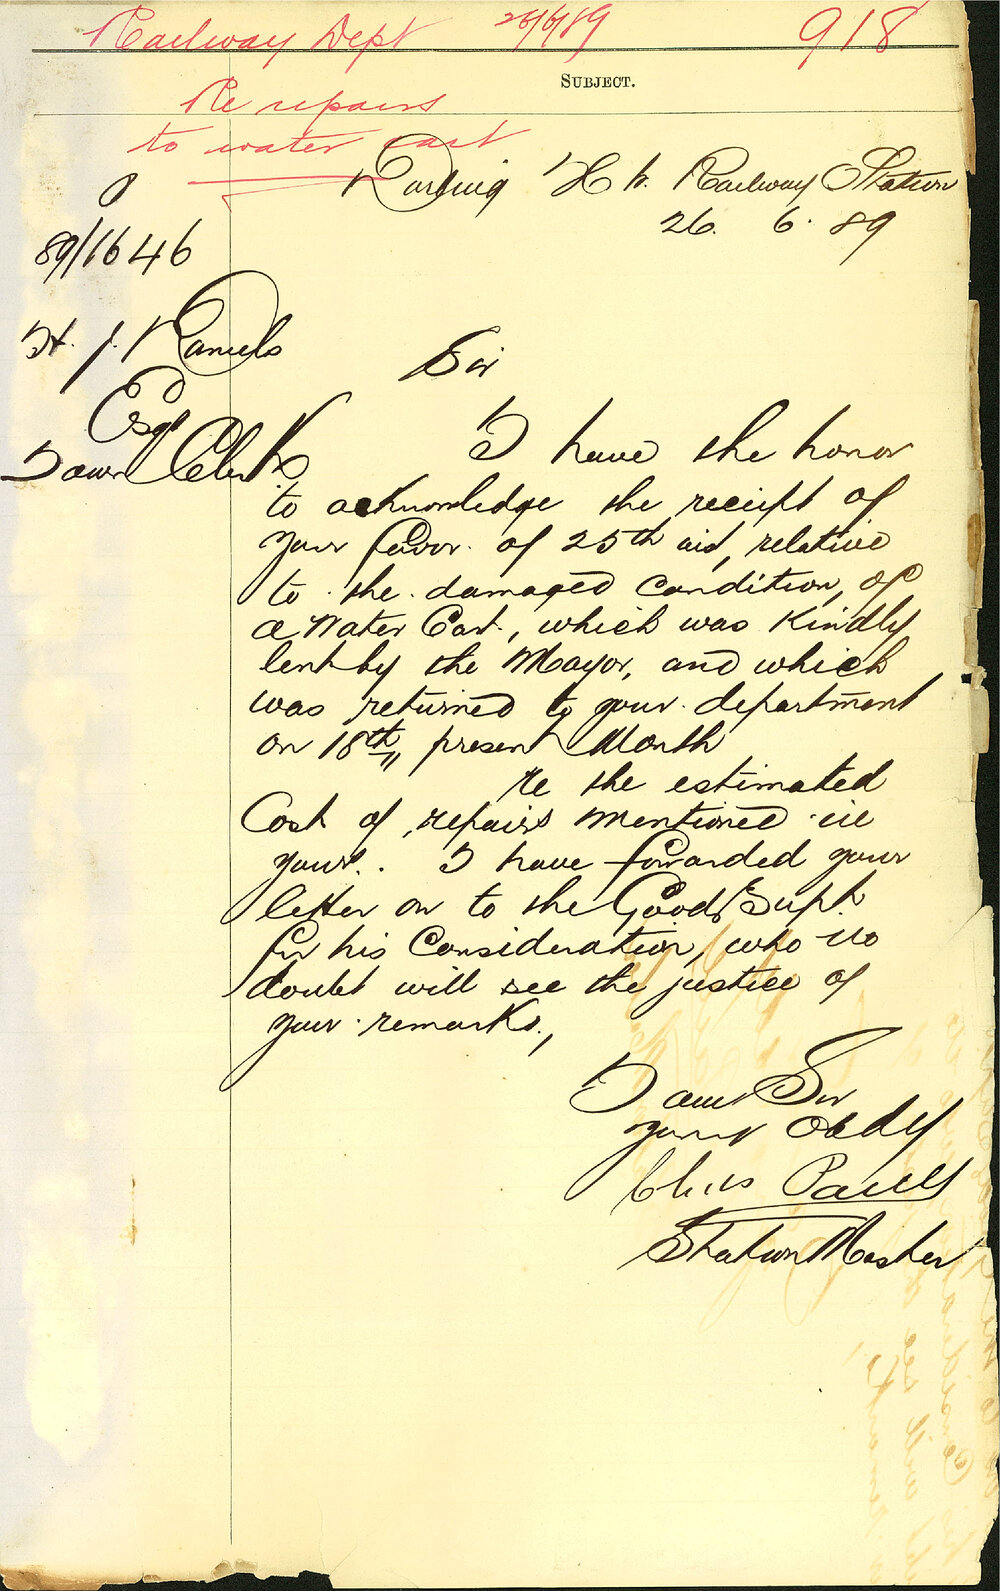 Railway Dept 26/6/89 918
SUBJECT.
Re repairs
to water cart
Darling Hr. Railway Station
26. 6. 89
89/1646
H. J. Daniels
Esqr
Town Clerk
Sir
I have the honor
to acknowledge the receipt of
your favor. of 25th inst, relative
to. the. damaged condition, of
a Water Cart., which was kindly
lent by the Mayor, and which
was returned to your. department
on 18th,, present Month
re the estimated
Cost of, repairs mentioned in
yours. I have forwarded your
letter on to the Goods Supt.
for his Consideration, who no
doubt will see the justice of
your remarks.,
I am Sir
Yours Obdly
Chas
Station Master